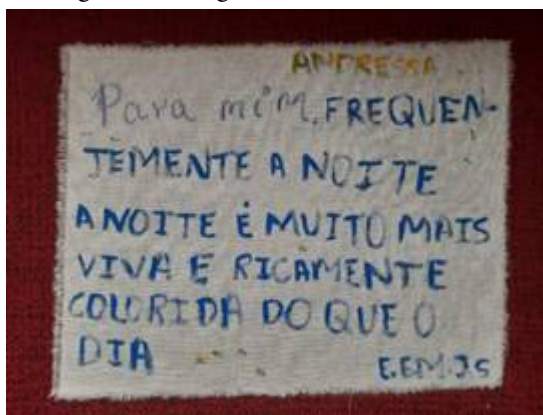 ANDRESSA
Para mim, FREQUEN-
TEMENTE A NOITE
A NOITE É MUITO MAIS
VIVA E RICAMENTE
COLORIDA DO QUE O
DIA
E.EM.J.S